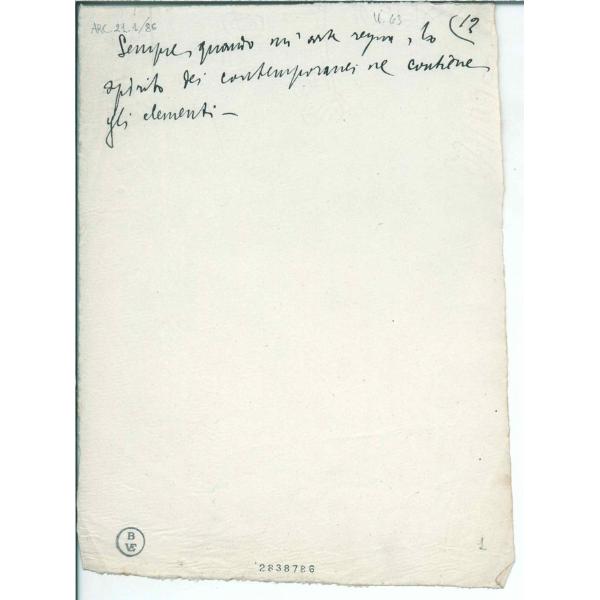 ARC. 21. 1/86
U. 63
(12
Sempre, quando un'arte regna, lo
spirito dei contemporanei ne contiene
gli elementi —
B
VE
2838786
1